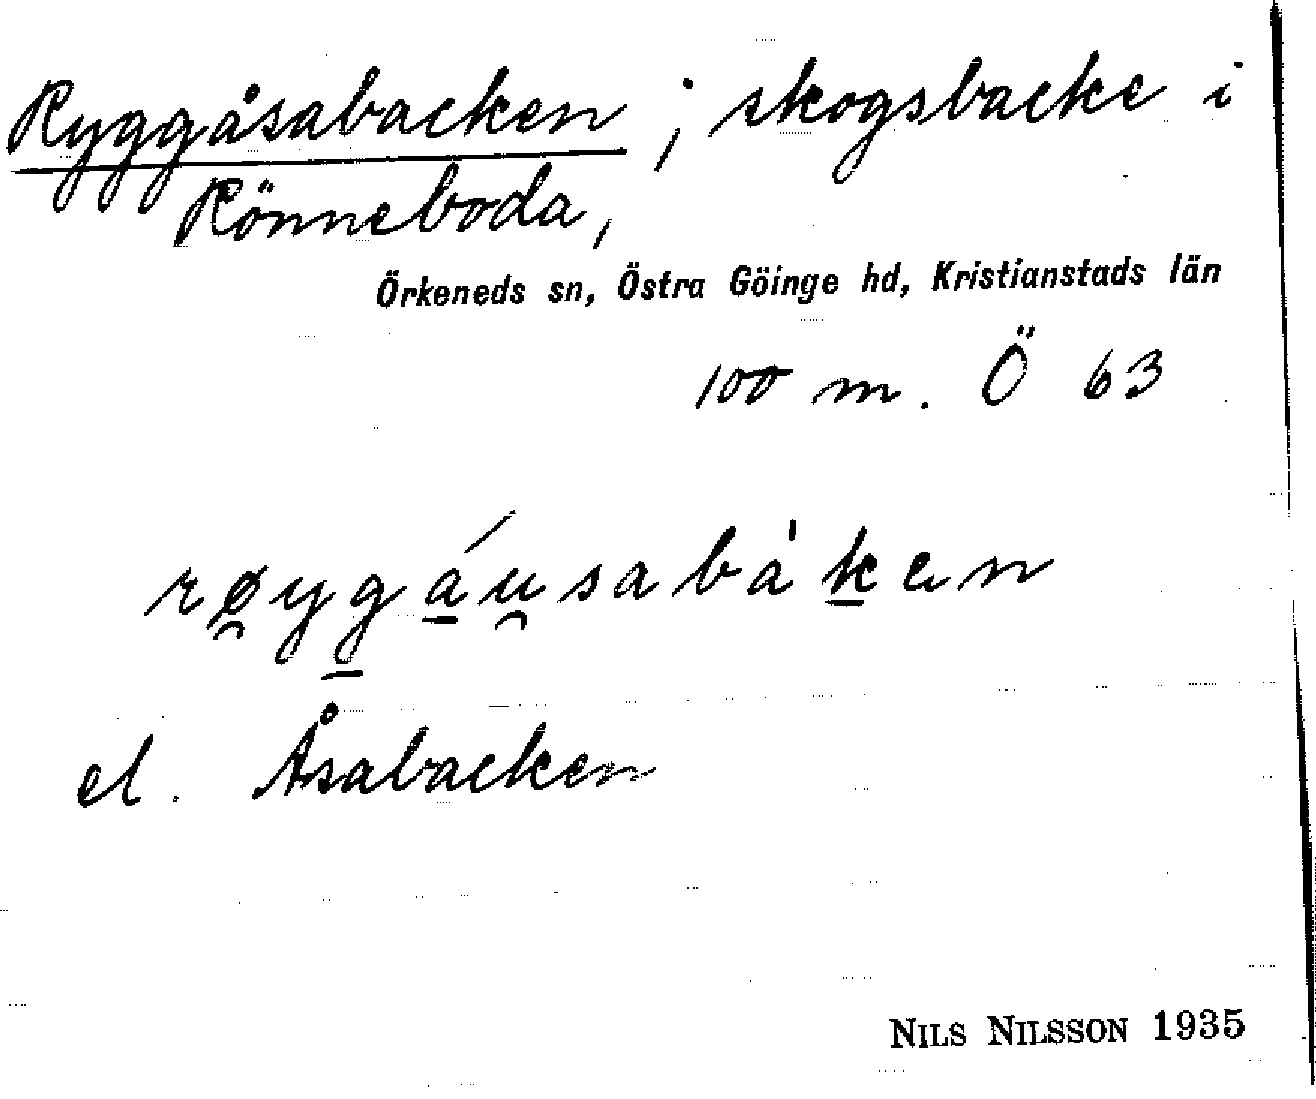 Ryggåsabacken ; skogsbacke i
Rönneboda,
Örkeneds sn, Östra Göinge hd, Kristianstads län
100 m. Ö 63
rø̯yg̱á̱u̯sabàḵen
el. Åsabacken
NILS NILSSON 1935